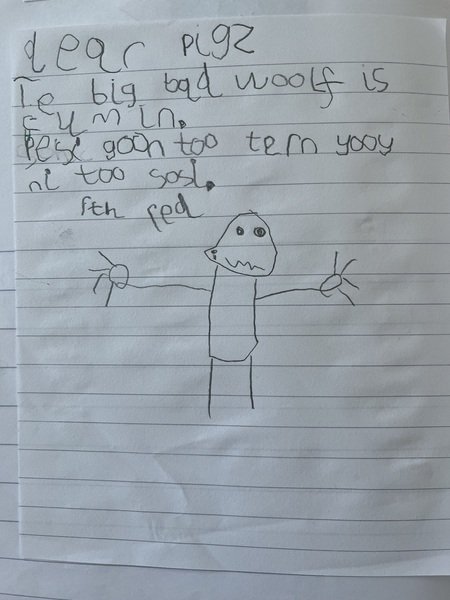 dear pigz
Te big bad woolf is
cumin.
Pesx goon too tern yooy
ni too sosi.
fth fed